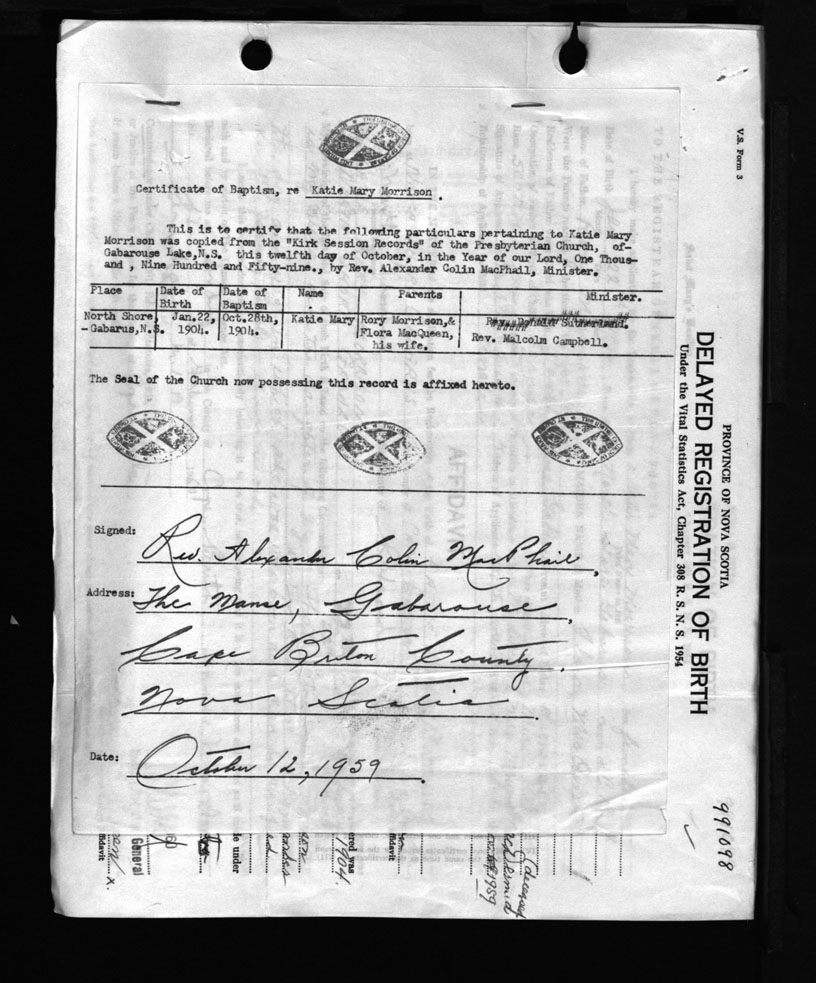 Certificate of Baptism, re Katie Mary Morrison.
This is to certify that the following particulars pertaining to Katie Mary
Morrison was copied from the "Kirk Session Records" of the Presbyterian Church, of-
Gabarouse Lake,N.S. this twelfth day of October, in the Year of our Lord, One Thous-
and , Nine Hundred and Fifty-nine., by Rev. Alexander Colin MacPhail, Minister.
Place Date of Birth Date of Baptism Name Parents Minister.
North Shore, Jan.22, Oct.28th, Katie Mary Rory Morrison,& Rev. Donald Sutherland.
-Gabarus,N.S. 1904. 1904. Flora MacQueen, Rev. Malcolm Campbell.
his wife.
The Seal of the Church now possessing this record is affixed hereto.
Signed: Rev. Alexander Colin MacPhail,
Address: The Manse, Gabarouse,
Cape Briton County,
Nova Scotia.
Date: October 12, 1959.
V.S. Form 3
PROVINCE OF NOVA SCOTIA
DELAYED REGISTRATION OF BIRTH
Under the Vital Statistics Act, Chapter 308 R. S. N. S. 1954
991098
(deceased
1959
ered was
1904
ffidavit
le under
60
General
ffidavit
x.